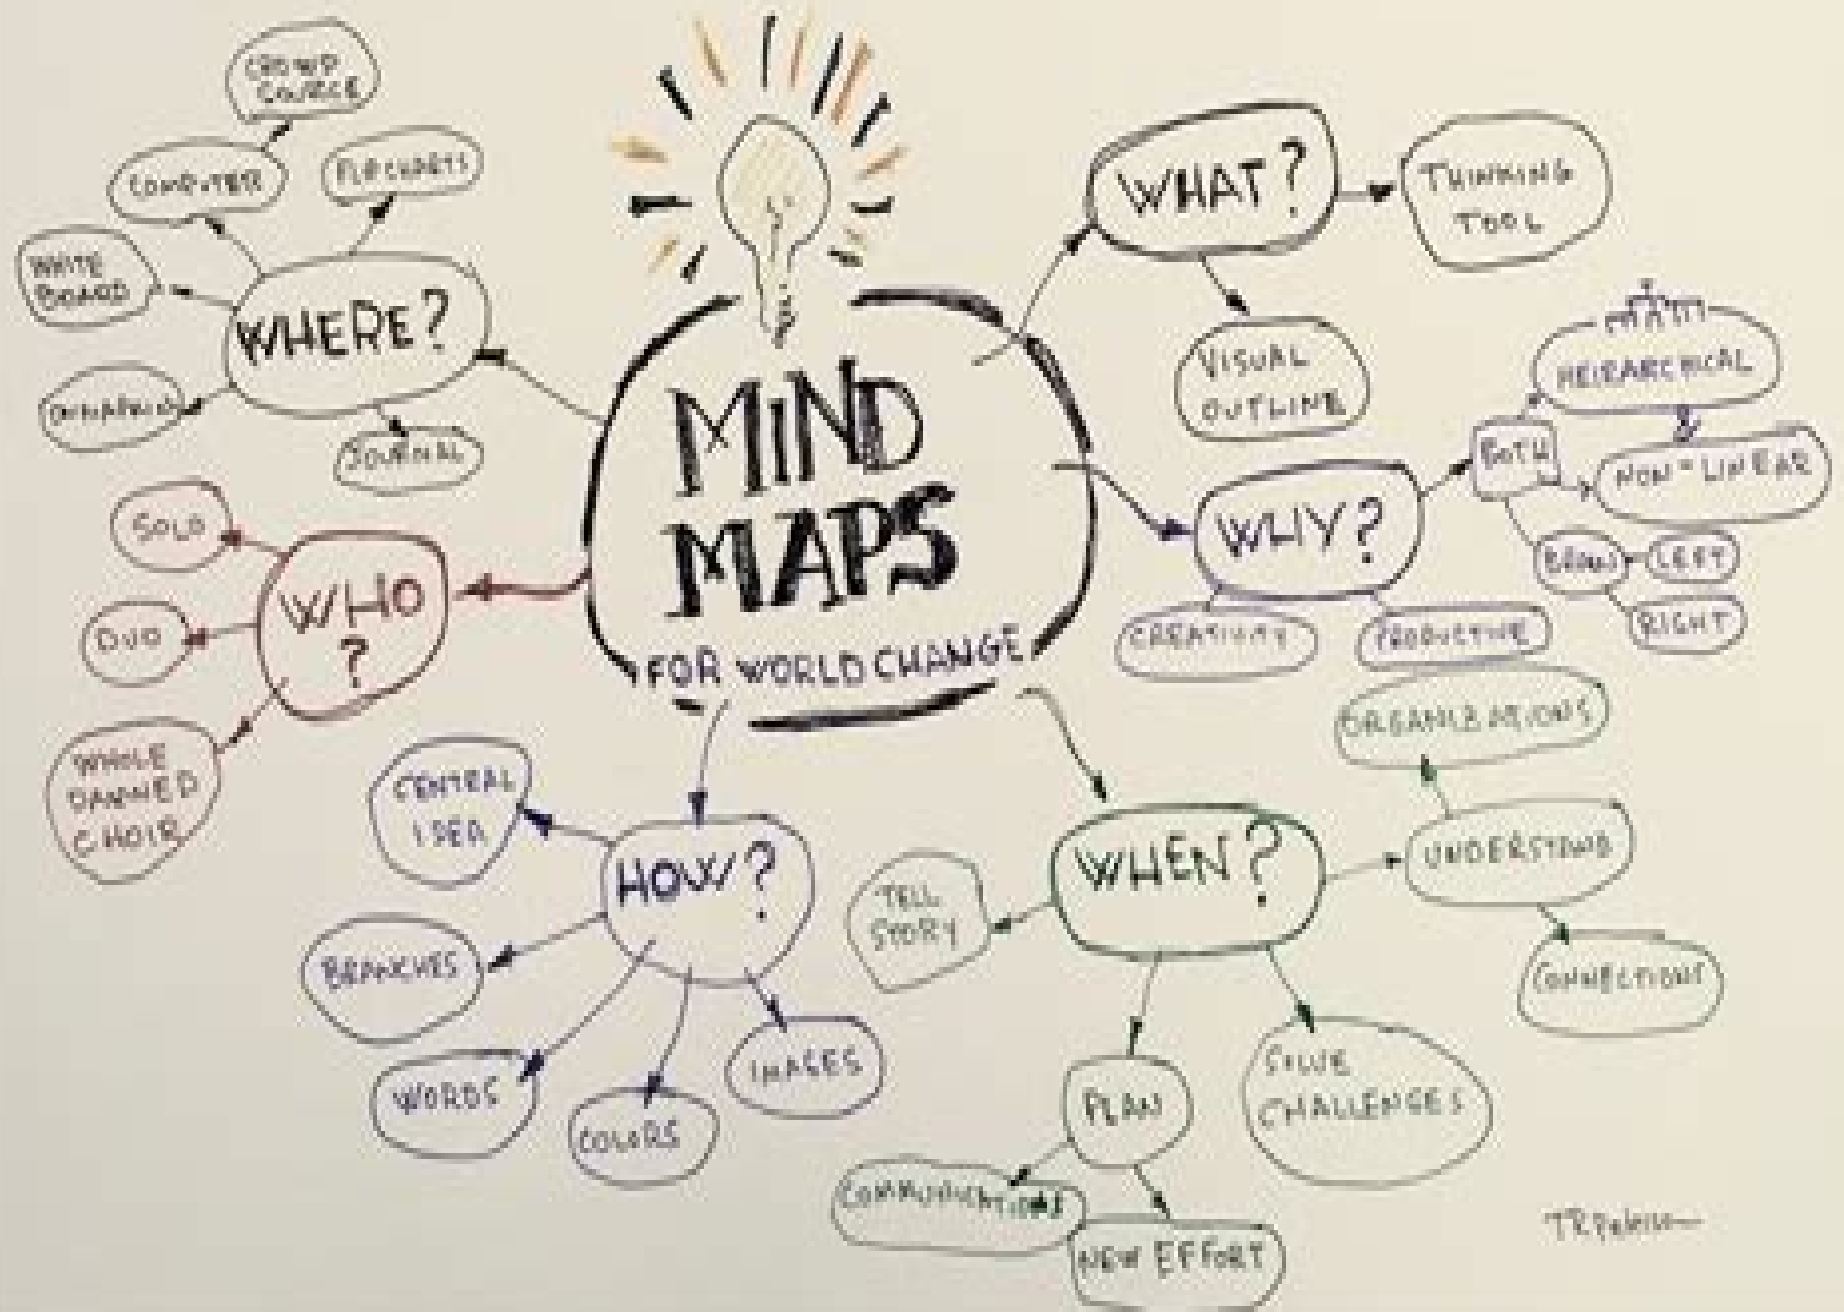 MIND
MAPS
FOR WORLD CHANGE
WHAT?
THINKING
TOOL
VISUAL
OUTLINE
WHY?
BOTH
HEIRARCHICAL
NON-LINEAR
BRAIN
LEFT
RIGHT
CREATIVITY
PRODUCTIVE
WHEN?
UNDERSTAND
ORGANIZATIONS
CONNECTIONS
SOLVE
CHALLENGES
PLAN
COMMUNICATIONS
NEW EFFORT
TELL
STORY
HOW?
CENTRAL
IDEA
BRANCHES
WORDS
COLORS
IMAGES
WHO
?
SOLO
DUO
WHOLE
DAMNED
CHOIR
WHERE?
JOURNAL
WHITE
BOARD
COMPUTER
CROWD
SOURCE
FLIPCHARTS